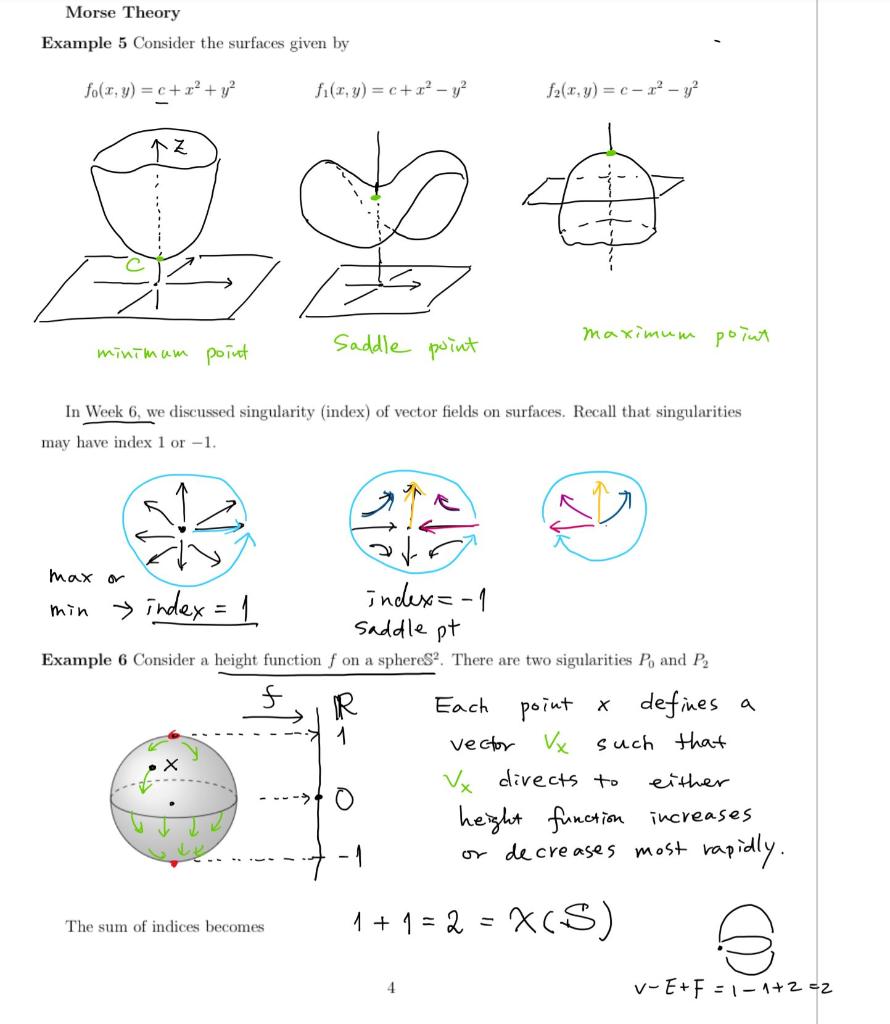 Morse Theory
Example 5 Consider the surfaces given by
f₀(x, y) = c + x² + y² f₁(x, y) = c + x² − y² f₂(x, y) = c − x² − y²
Z
C
minimum point Saddle point maximum point
In Week 6, we discussed singularity (index) of vector fields on surfaces. Recall that singularities
may have index 1 or −1.
max or
min → index = 1
index = -1
saddle pt
Example 6 Consider a height function f on a sphereS². There are two sigularities P₀ and P₂
f ℝ
1
x
0
-1
Each point x defines a
vector Vx such that
Vx directs to either
height function increases
or decreases most rapidly.
The sum of indices becomes 1 + 1 = 2 = χ(S)
V-E+F = 1-1+2=2
4